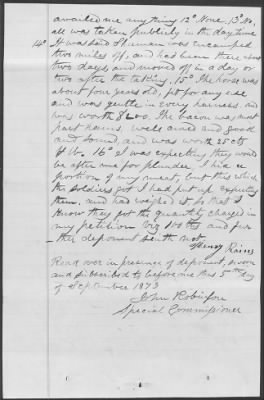 awaited me any thing 12º None, 13º No,
all was taken publicly in the day time
14º It was said Sherman was encamped
two miles off, and had been there about
two days, and moved off in a day or
two after the taking, 15º The horse was
about four years old, fit for any use
and was gentle in every harness, and
was worth $200. The bacon was most
part hams, well cured and good
and sound and was worth 25 cts
pr lb. 16º I was expecting they would
be after me for plunder I hid a
portion of my meat, but this which
the soldiers got I had put up expecting
them, and had weighed it, so that I
know they got the quantity charged in
my petition viz 100 lbs and fur
-ther deponent saith not
Henry Rains
Read over in presence of deponent, sworn
and subscribed to before me this 5th day
of September 1873
John Robinson
Special Commissioner